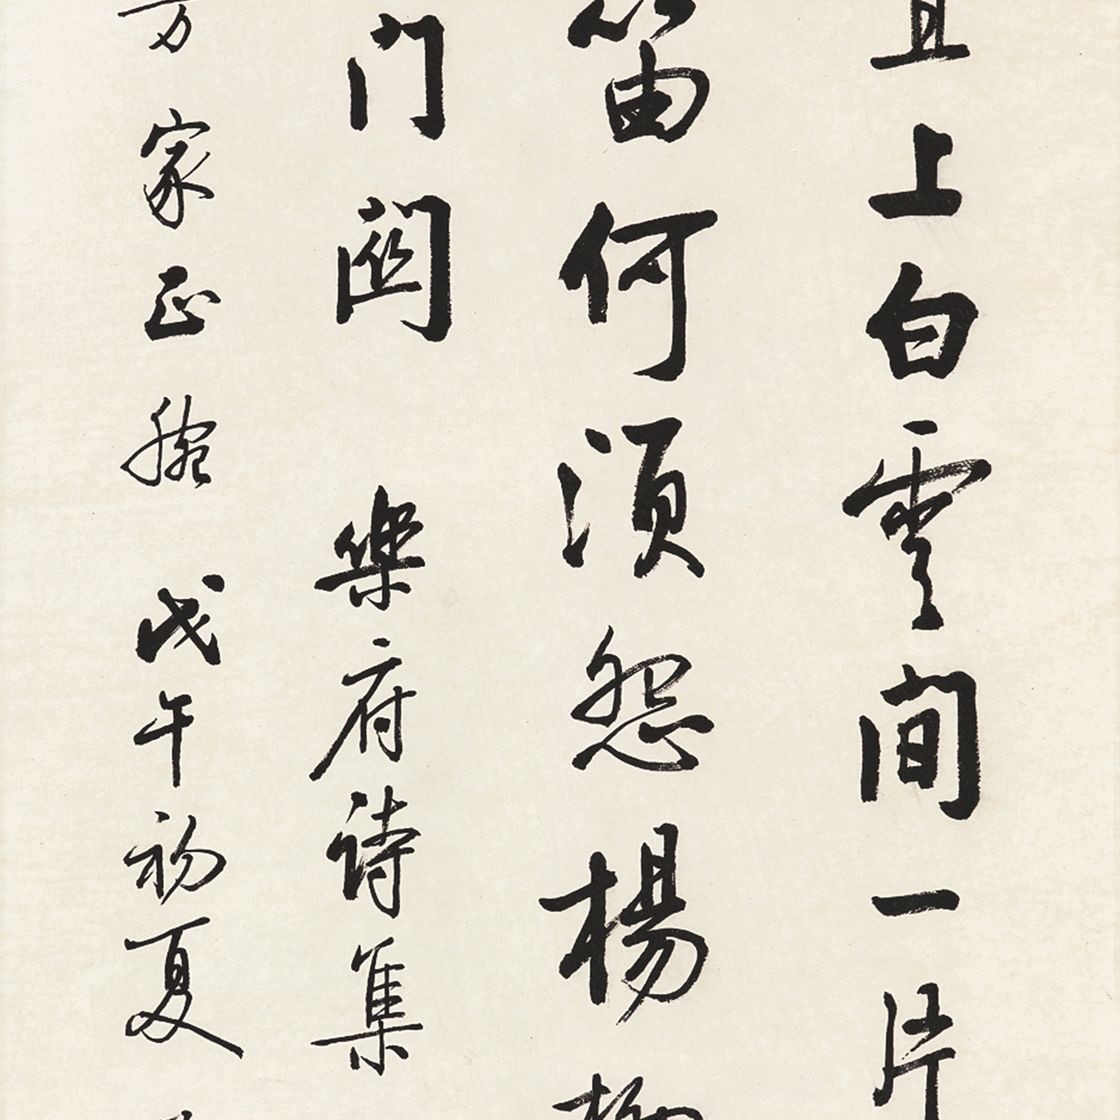 直上白雲間一片
笛何須怨楊柳
門關 樂府詩集
方家正腕 戊午初夏